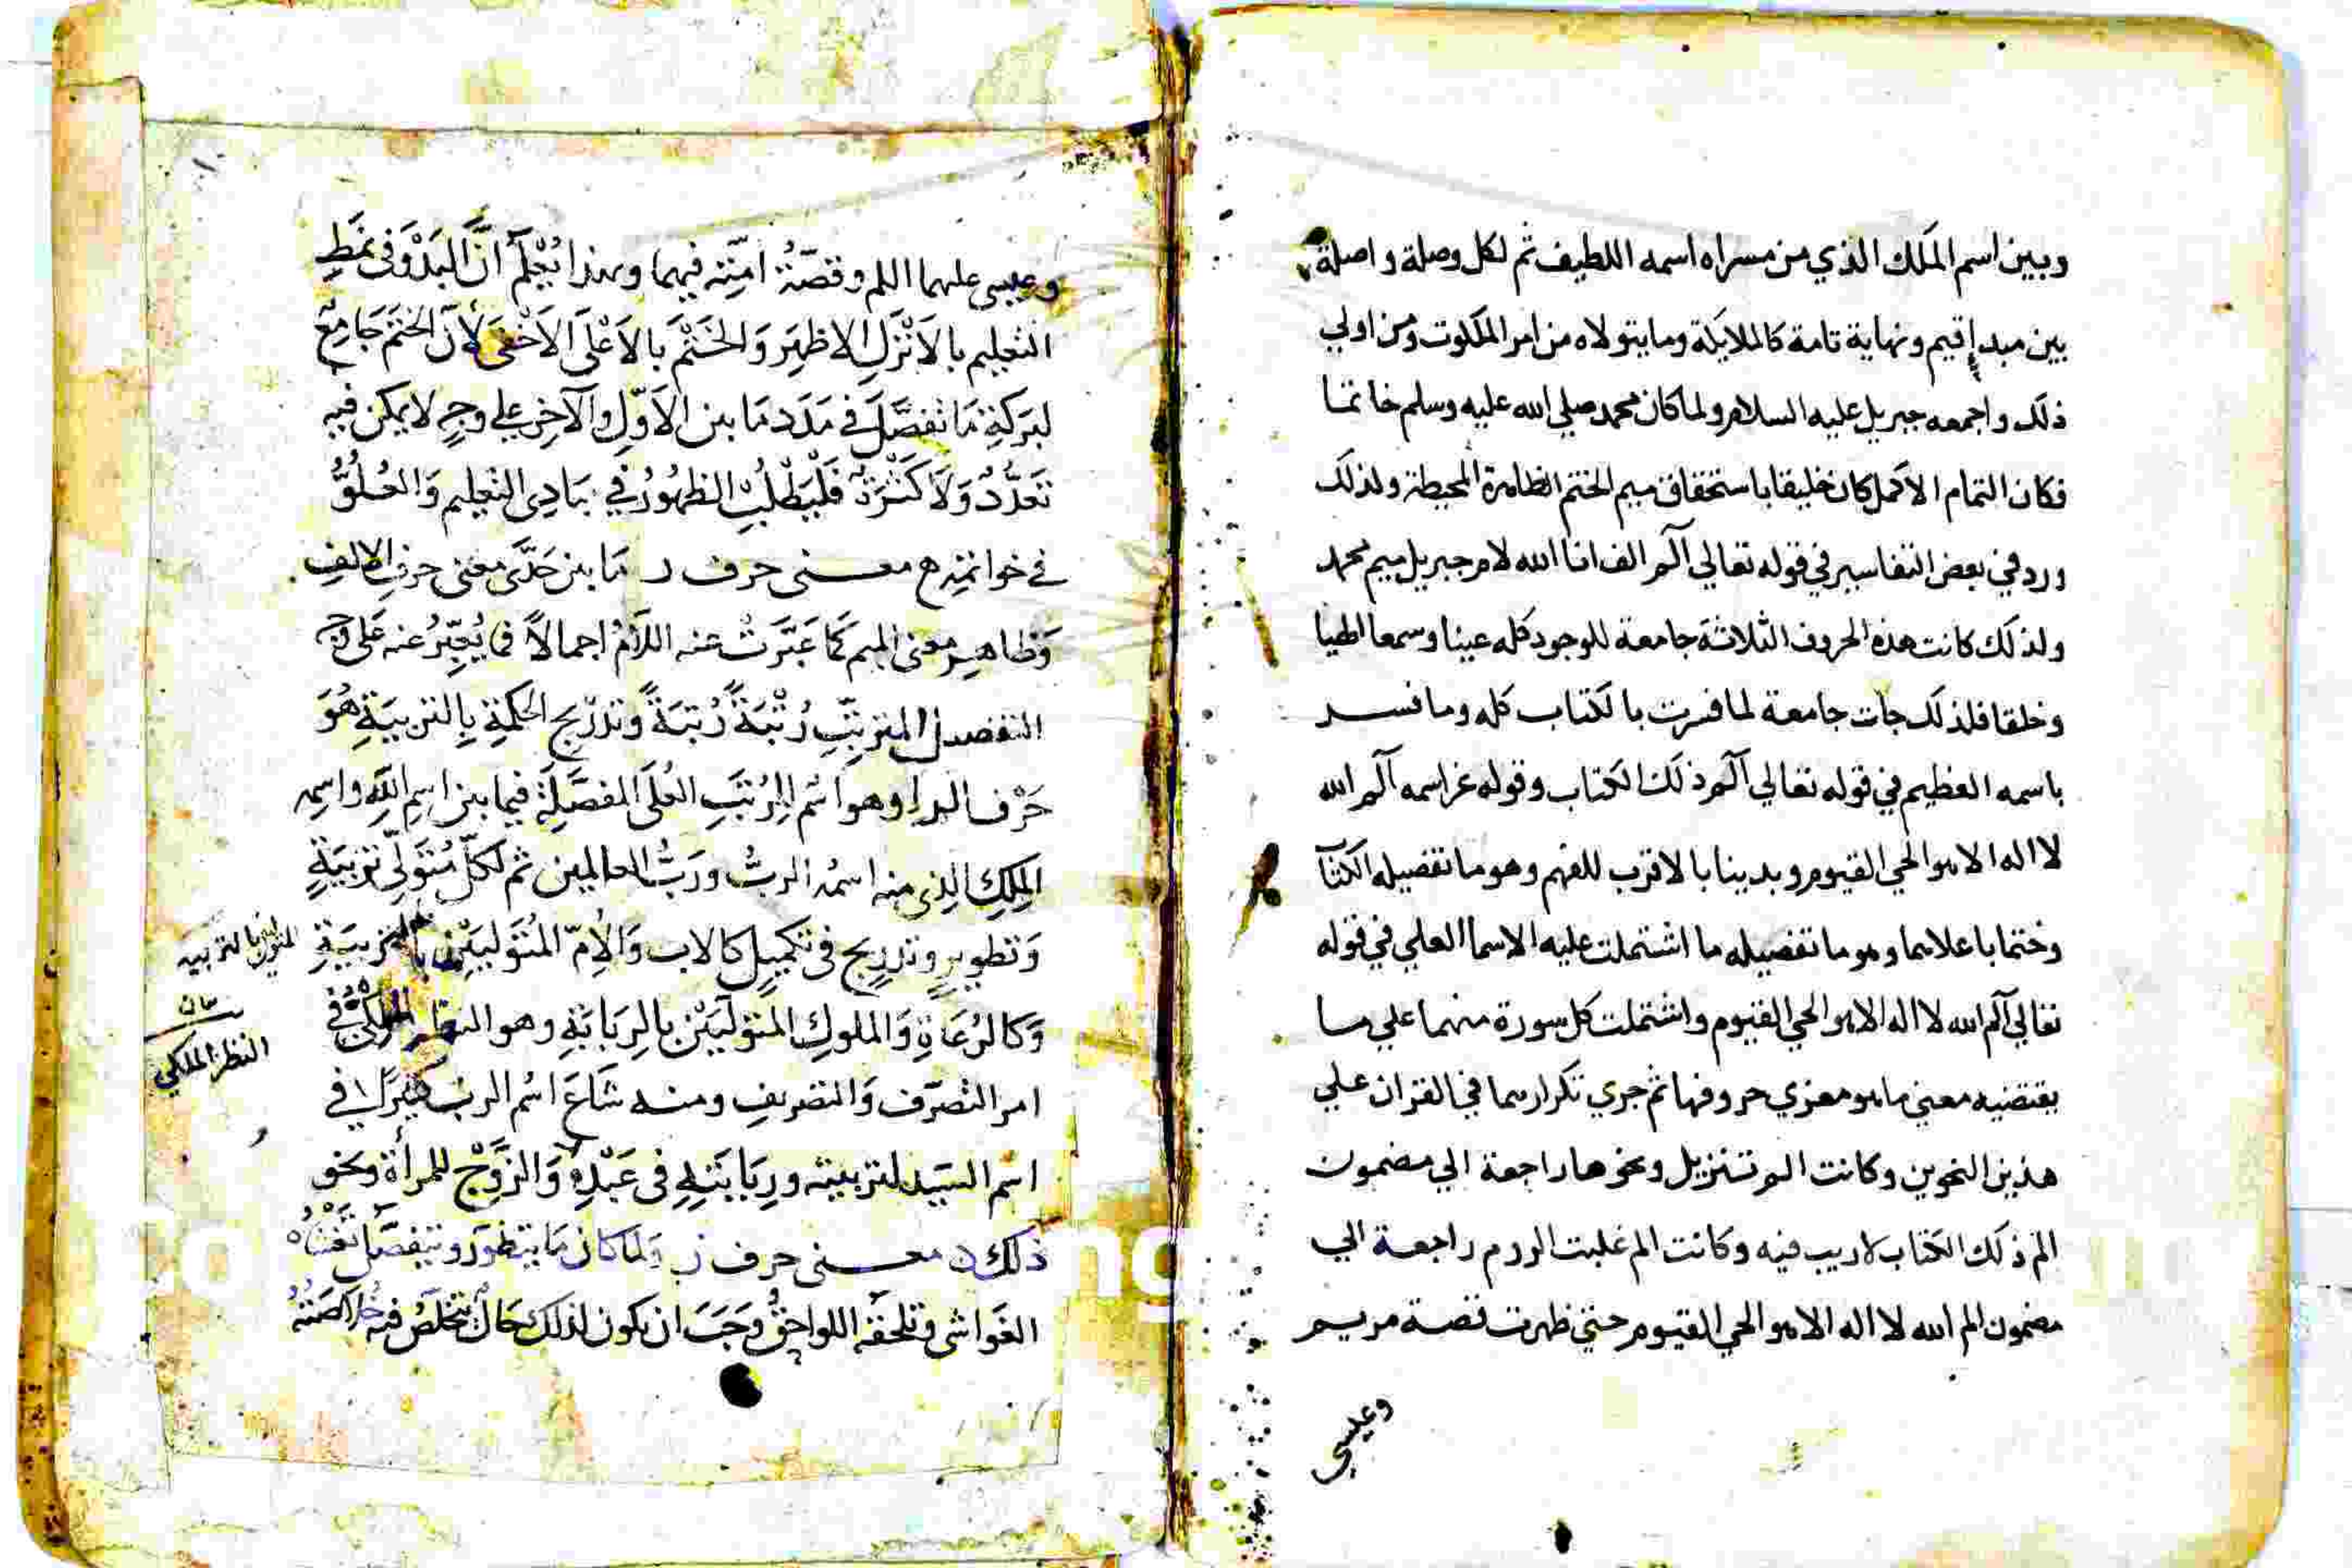 وبين اسم الملك الذي من مسراه اسمه اللطيف ثم لكل وصلة واصلة
بين مبدإ قيم ونهاية تامة كالملايكة وما يتولاه من امر الملكوت ومن اولي
ذلك واجمعه جبريل عليه السلام ولما كان محمد صلي الله عليه وسلم خاتما
فكان التمام الاكمل كان خليقا باستحقاق ميم الختم الظاهرة المحيطة ولذلك
ورد في بعض التفاسير في قوله تعالي آلم الف انا الله لام جبريل ميم محمد
ولذلك كانت هذه الحروف الثلاثة جامعة للوجود كله عينا وسمعا
وخلقا فلذلك جات جامعة لما فسرت بالكتاب كله وما فسر
باسمه العظيم في قوله تعالي آلم ذلك الكتاب وقوله عز اسمه آلم الله
لا اله الا هو الحي القيوم وبدينا بالاقرب للفهم وهو ما تفصيله الكتاب
وختما باعلاهما وهو ما تفصيله ما اشتملت عليه الاسما العلي في قوله
تعالي آلم الله لا اله الا هو الحي القيوم واشتملت كل سورة منهما علي ما
يقتضيه معني ما هو مغزي حروفها ثم جري تكرارهما في القران علي
هذين النحوين وكانت الم تنزيل ونحوها راجعة الي مضمون
الم ذلك الكتاب لا ريب فيه وكانت الم غلبت الروم راجعة الي
مضمون الم الله لا اله الا هو الحي القيوم حتي ظهرت قصة مريم
وعيسي
وعيسى عليهما اللم وقصّةُ امّته فيهما وبهذا يُعْلَم أنّ البَدْوَ في نمَطِ
التعليم بالاَنْزَلِ الاظهَرِ وَالختْمَ بالاَعْلَى الاَخْفَى لأنّ الختَم جَامعٌ
لبركةِ مَا تفصَّلَ في مَدَد مَا بين الاَوّلِ والآخِرِ على وجهٍ لا يمكن فيه
تعَدُّدٌ وَلَا كثْرَةٌ فَلْيَطْلُبِ الظهُورُ في بَادِى التعليم وَالعُلُوُّ
في خواتمه ۞ معنى حرف ر مَا بين حَدَّى معنى حرفِ الالفِ
وَظاهِرِ معنى الميم كَمَا عَبَّرتْ عنه اللاَّمُ اجمالاً في يُعبِّرُ عنه عَلى وجه
التفصيل المترتِّبِ رُتْبَةً رُتبَةً وتدرّجِ الحكمةِ بالتربيَةِ هُوَ
حَرْف الراء وهو اسْم للرُتَبِ العُلَى المفصَّلةِ فيما بين اسمِ اللهِ واسمِه
المَلِكِ الذى منه اسمُه الربُّ ورَبُّ العالمين ثم لكلّ مُتَولّى تربيَةٍ
وَتطويرٍ وتدريجٍ في تكميلٍ كالاب وَالاُمّ المُتَولّيَيْن بالتربيَةِ
وَكالرُعَاةِ وَالملوكِ المتَولّيَيْن بالرِبَابَةِ وهو النظر الملكىُّ في
امر التصرّف وَالتصريفِ ومنه شَاعَ اسْم الربّ كثيراً في
اسم السَيّد لتربيته وربَابَتِهِ في عَبْدِهِ وَالزَوْجِ للمرأة ونحو
ذلك معنى حرف ز وَلما كان مَا يتطوّر ويتفصّل
الغوَاشى وتلحقُه اللواحقُ وَجَبَ ان يكون لذلك حَالٌ يتخلّصُ فيه
المتولين بالتربيه
بيان
النظر الملكي